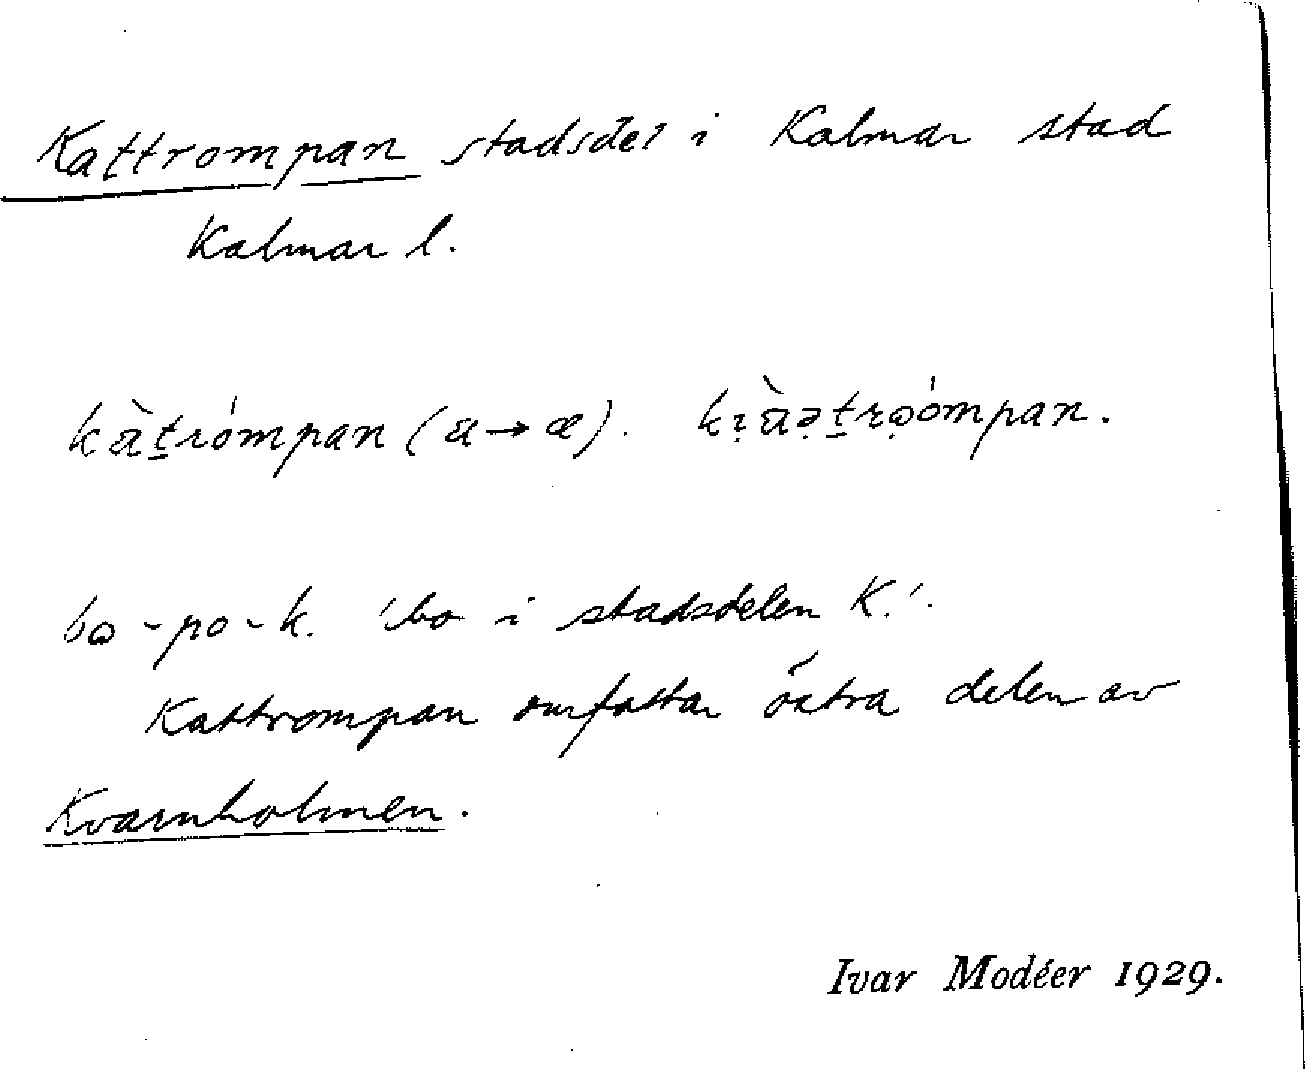 Kattrompan stadsdel i Kalmar stad
Kalmar l.
kàt̠rómpan (a → æ). kı̣àə̣t̠rọómpan.
bo - po - k. 'bo i stadsdelen K.'.
Kattrompan omfattar östra delen av
Kvarnholmen.
Ivar Modéer 1929.